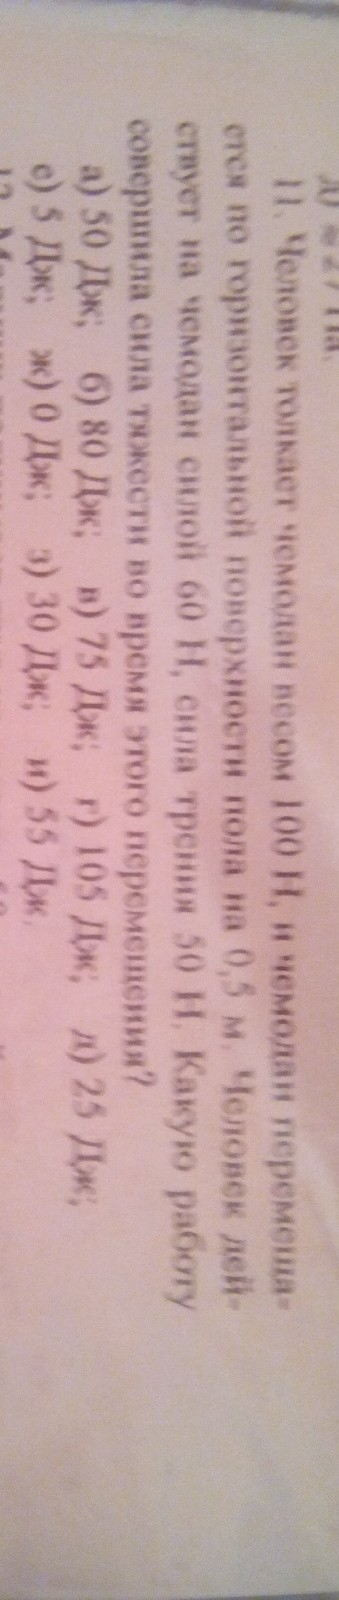 11. Человек толкает чемодан весом 100 Н, и чемодан перемеща-
ется по горизонтальной поверхности пола на 0,5 м. Человек дей-
ствует на чемодан силой 60 Н, сила трения 50 Н. Какую работу
совершила сила тяжести во время этого перемещения?
а) 50 Дж; б) 80 Дж; в) 75 Дж; г) 105 Дж; д) 25 Дж;
е) 5 Дж; ж) 0 Дж; з) 30 Дж; и) 55 Дж.